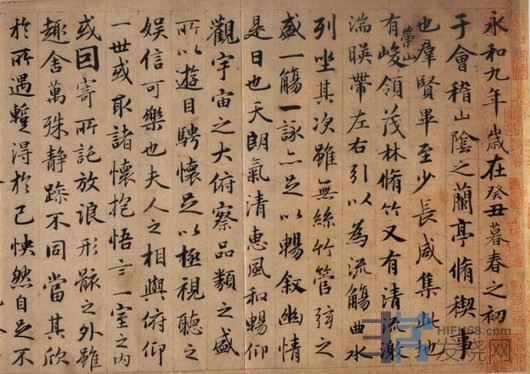 永和九年歲在癸丑暮春之初
于會稽山陰之蘭亭脩稧事
也羣賢畢至少長咸集此地
有崇山峻領茂林脩竹又有清流激
湍暎帶左右引以為流觴曲水
列坐其次雖無絲竹管弦之
盛一觴一詠亦足以暢叙幽情
是日也天朗氣清惠風和暢仰
觀宇宙之大俯察品類之盛
所以遊目騁懷足以極視聽之
娛信可樂也夫人之相與俯仰
一世或取諸懷抱悟言一室之內
或因寄所託放浪形骸之外雖
趣舍萬殊靜躁不同當其欣
於所遇蹔得於己怏然自足不
HIFI168.com
发烧网